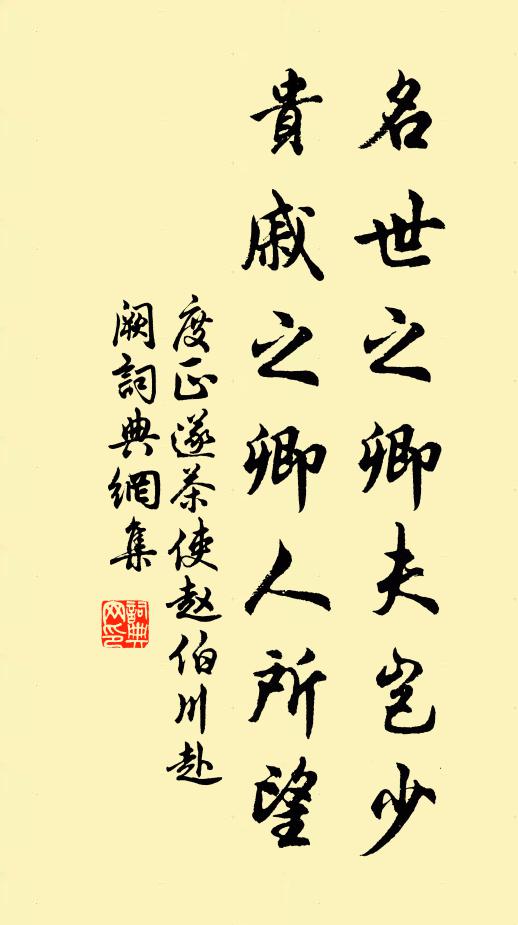 名世之卿夫岂少
貴戚之卿人所望
度正送茶使赵伯川赴
阙詞典網集
詞典网印